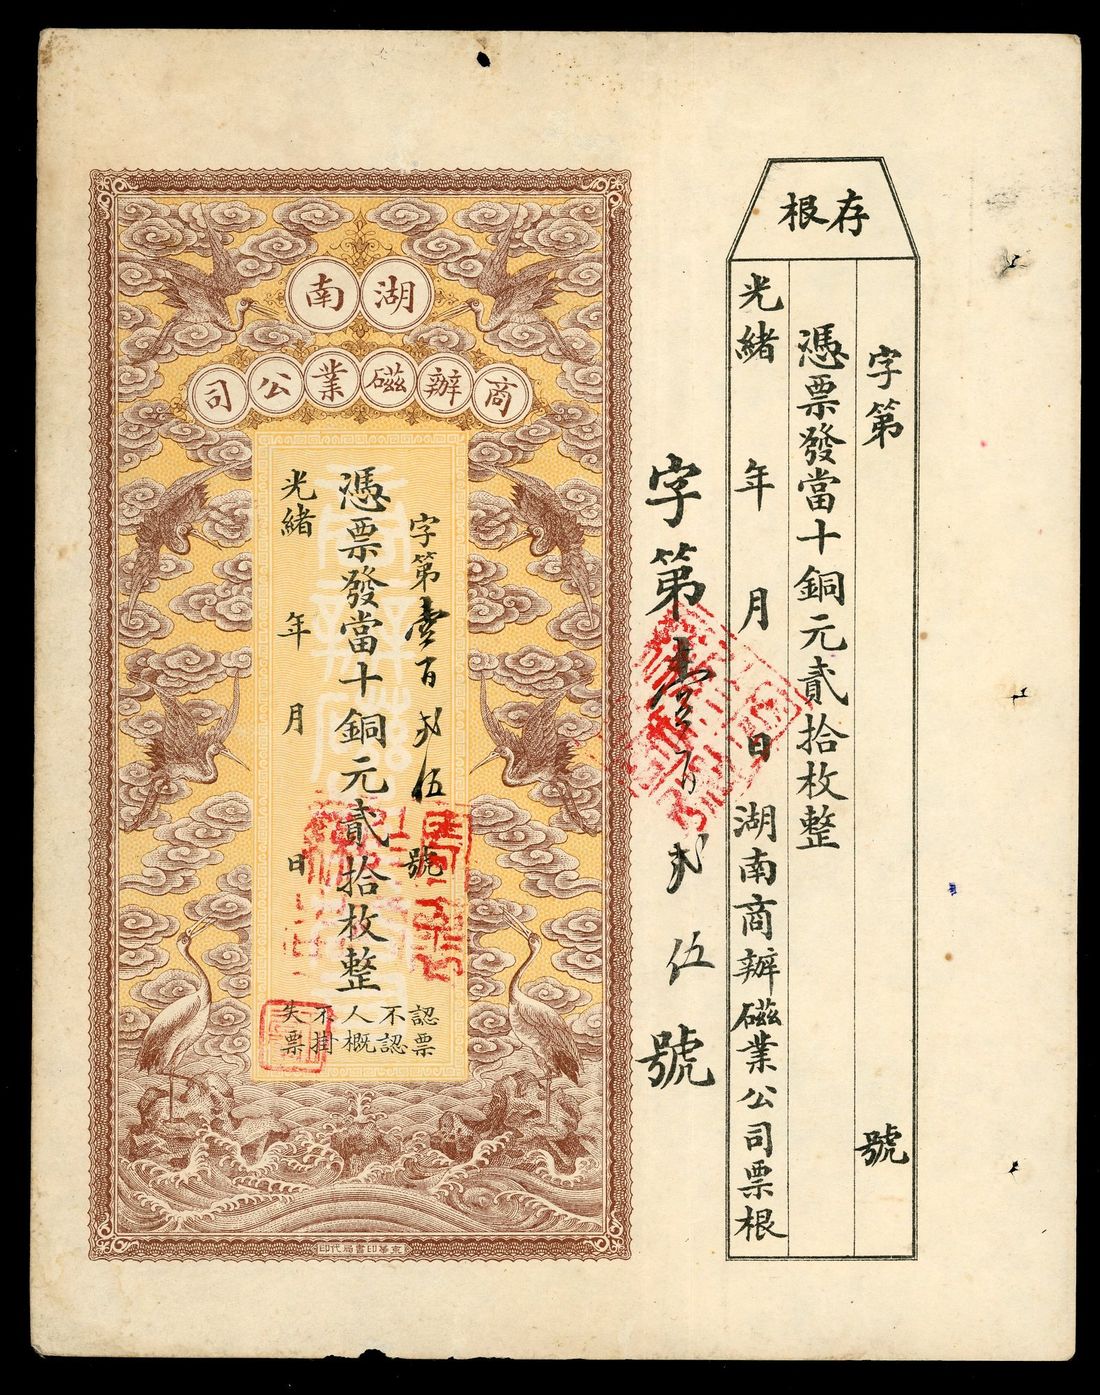 存根
字第　號
憑票發當十銅元貳拾枚整
光緒　年　月　日湖南商辦磁業公司票根
字第壹百弍伍號
湖南
商辦磁業公司
字第壹百弍伍號
憑票發當十銅元貳拾枚整
光緒　年　月　日
認票
不認
人概
不掛
失票
京華印書局代印